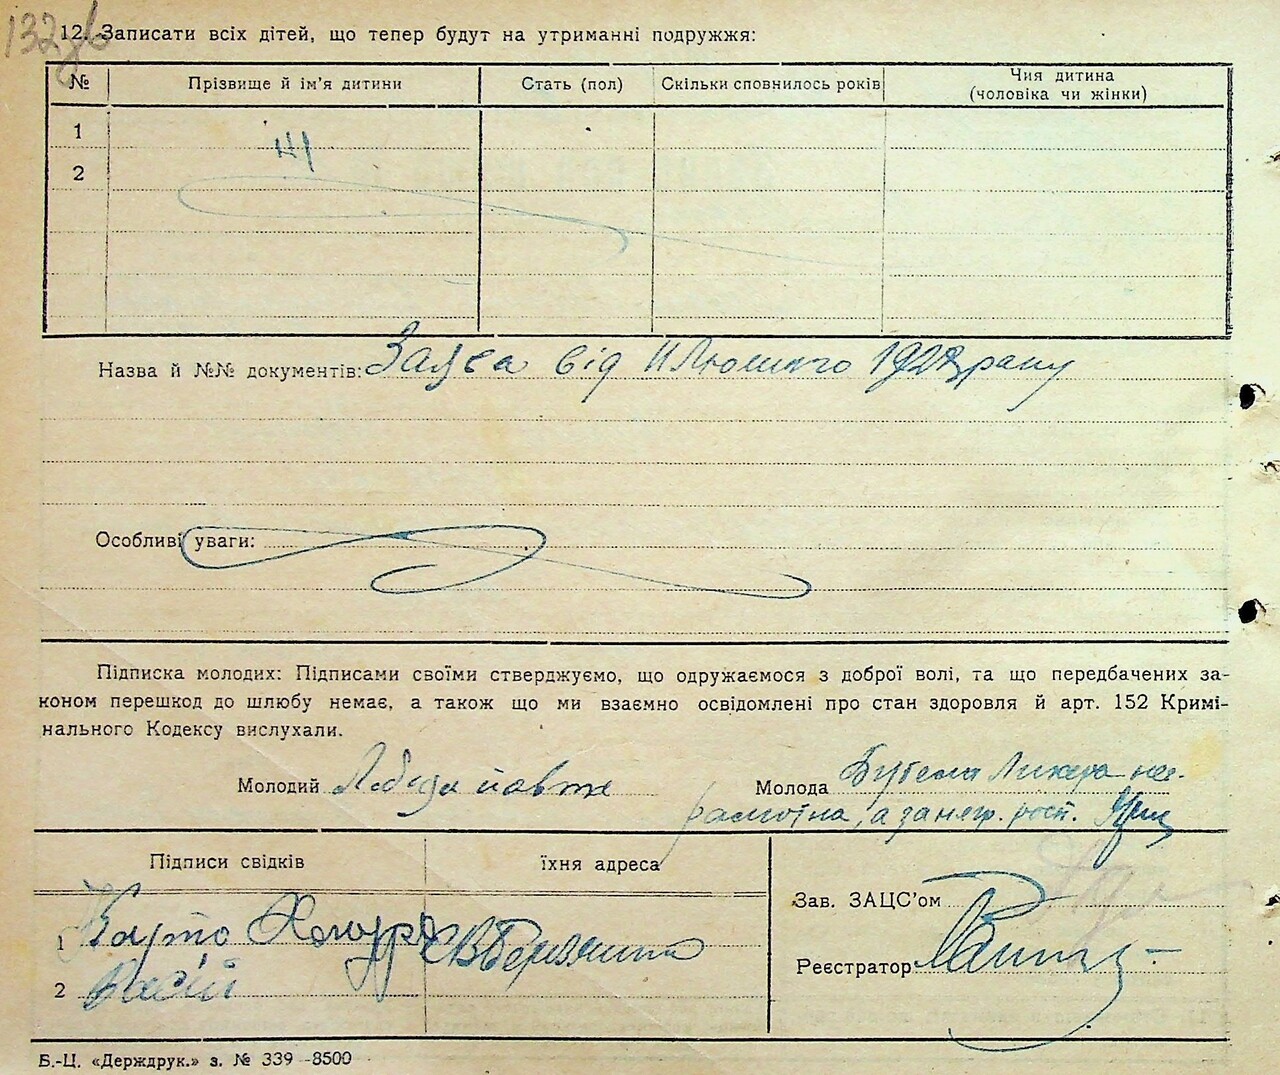 132зв
12. Записати всіх дітей, що тепер будут на утриманні подружжя:
№ Прізвище й ім'я дитини Стать (пол) Скільки сповнилось років Чия дитина (чоловіка чи жінки)
1
ні
2
Назва й №№ документів: Заява від 11 Лютого 1928 року
Особливі уваги:
Підписка молодих: Підписами своїми стверджуємо, що одружаємося з доброї волі, та що передбачених за-
коном перешкод до шлюбу немає, а також що ми взаємно освідомлені про стан здоровля й арт. 152 Кримі-
нального Кодексу вислухали.
Молодий Лебеда
Молода Ликера не-
грамотна, а за негр. росп.
Підписи свідків їхня адреса
Зав. ЗАЦС'ом
1
Реєстратор
2
Б.-Ц. «Держдрук.» з. № 339 -8500